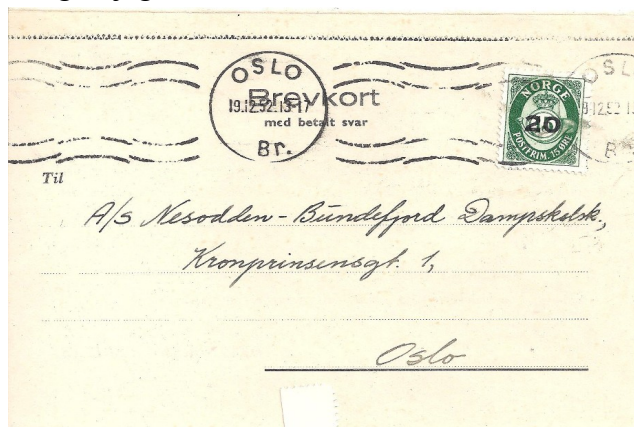 OSLO
19.12.52.13-17
Br.
Brevkort
med betalt svar
NORGE
20
POSTFRIM. 15 ØRE
OSL
9.12.52.1
B
Til
A/S Nesodden-Bundefjord Dampskselsk.,
Kronprinsensgt. 1,
Oslo